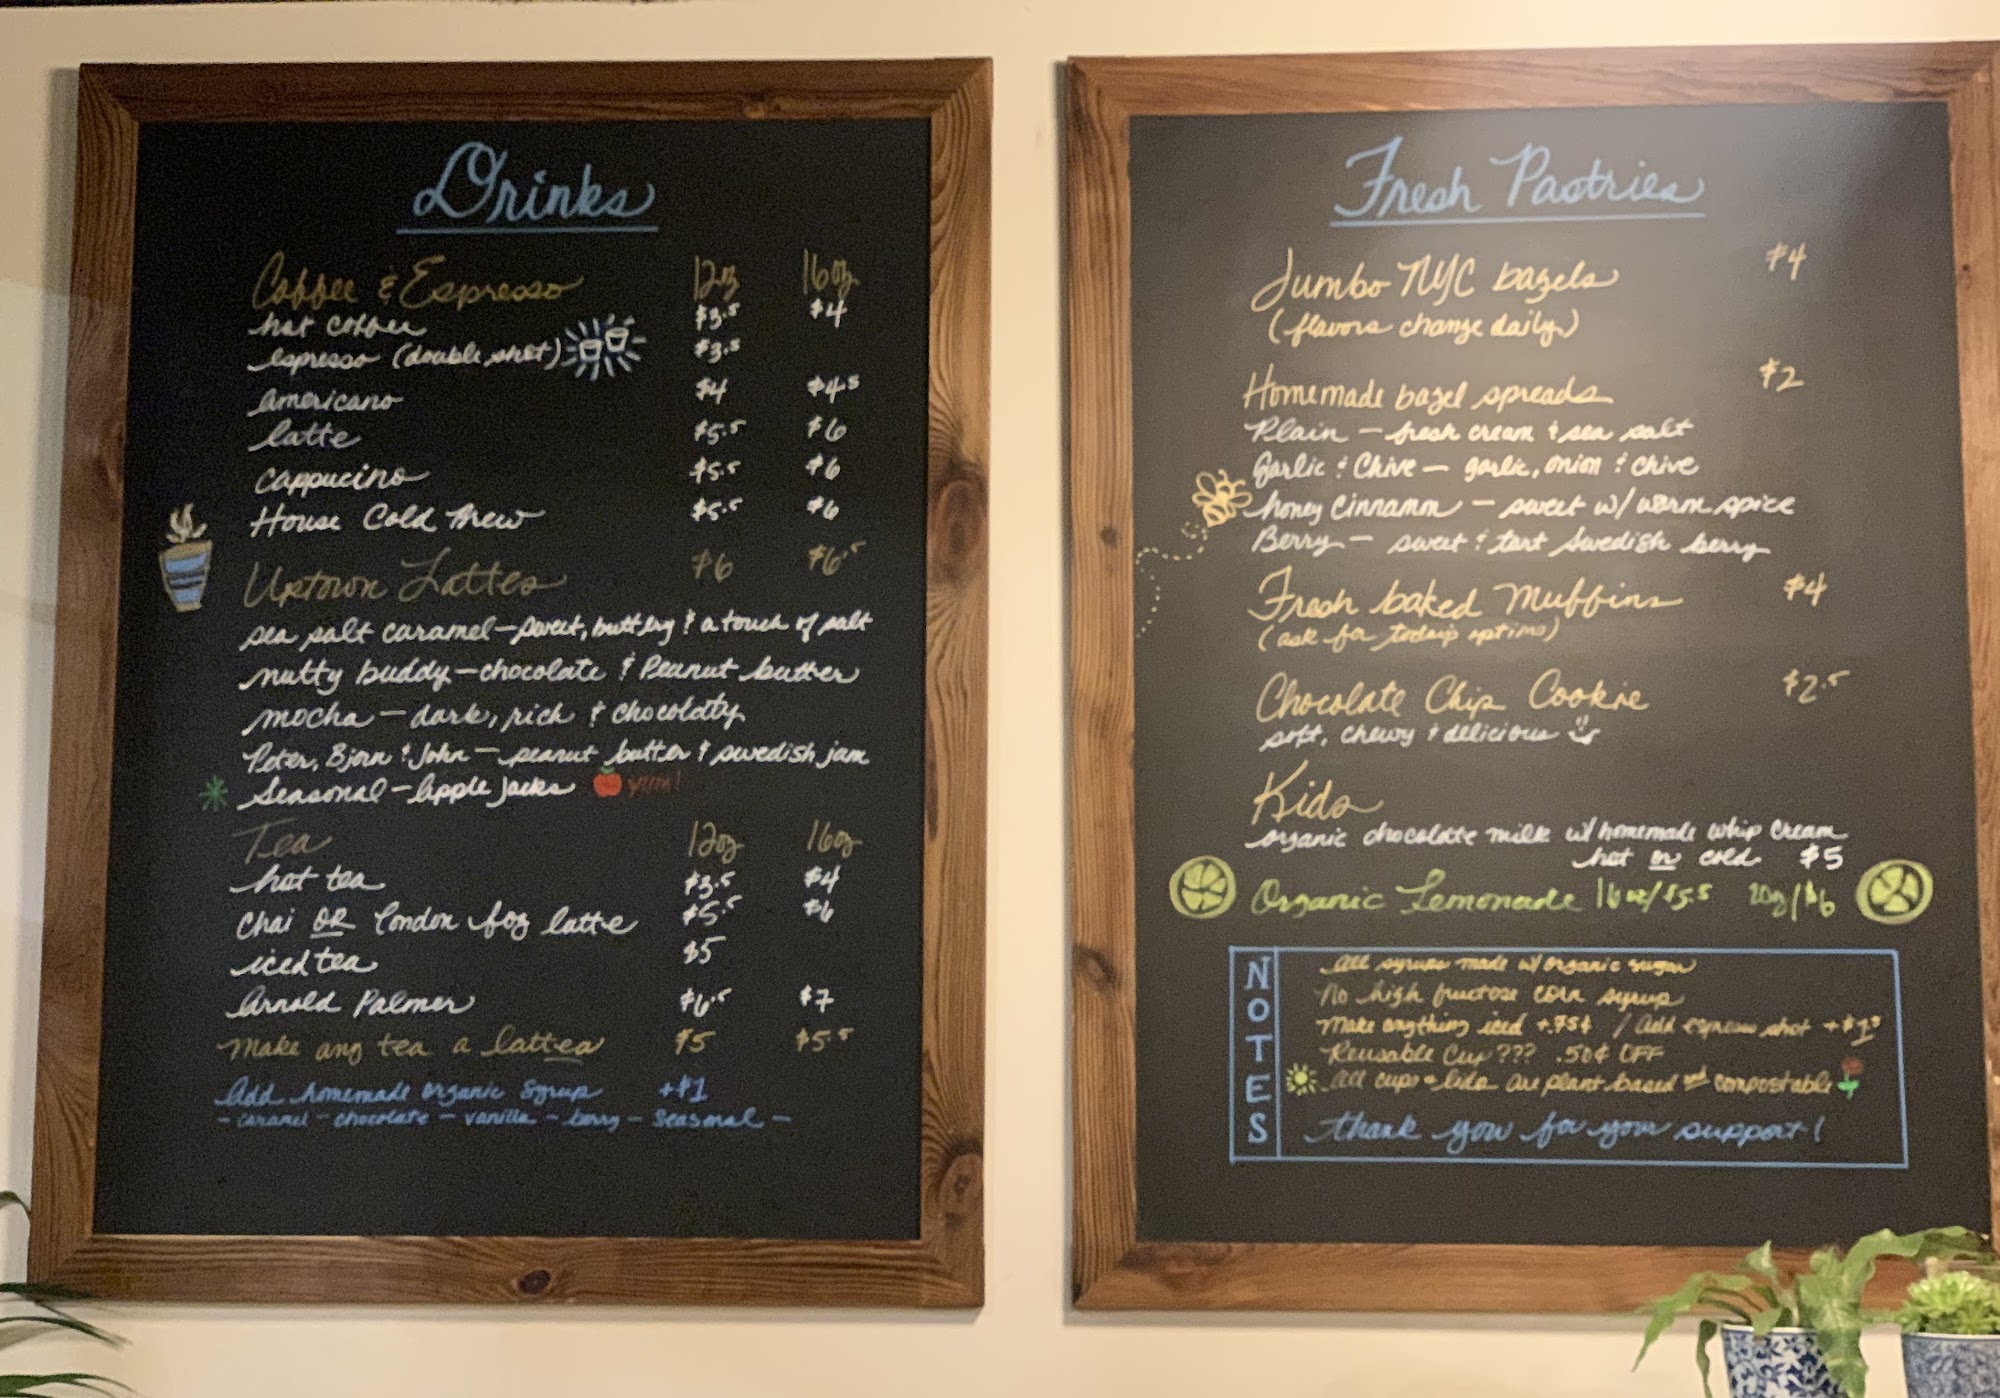 Drinks
Coffee & Espresso 12oz 16oz
hot coffee $3.5 $4
espresso (double shot) $3.5
americano $4 $4.5
latte $5.5 $6
cappucino $5.5 $6
House Cold Brew $5.5 $6
Uptown Lattes $6 $6.5
sea salt caramel - sweet, buttery & a touch of salt
nutty buddy - chocolate & Peanut butter
mocha - dark, rich & chocolaty
Peter, Bjorn & John - peanut butter & swedish jam
Seasonal - Apple Jacks yum!
Tea 12oz 16oz
hot tea $3.5 $4
Chai OR London fog latte $5.5 $6
iced tea $5
Arnold Palmer $6.5 $7
Make any tea a lattea $5 $5.5
Add homemade organic syrup +$1
- caramel - chocolate - vanilla - berry - seasonal -
Fresh Pastries
Jumbo NYC bagels $4
(flavors change daily)
Homemade bagel spreads $2
Plain - fresh cream & sea salt
Garlic & Chive - garlic, onion & chive
honey Cinnamon - sweet w/ warm spice
Berry - sweet & tart Swedish berry
Fresh baked Muffins $4
(ask for today's options)
Chocolate Chip Cookie $2.5
soft, chewy & delicious
Kids
organic chocolate milk w/ homemade whip cream
hot or cold $5
Organic Lemonade 16oz/$5.5 20oz/$6
NOTES
All syrups made w/ organic sugar
No high fructose corn syrup
Make anything iced +.75¢ / Add espresso shot +$1.5
Reusable Cup??? .50¢ OFF
All cups & lids are plant based and compostable
thank you for your support!